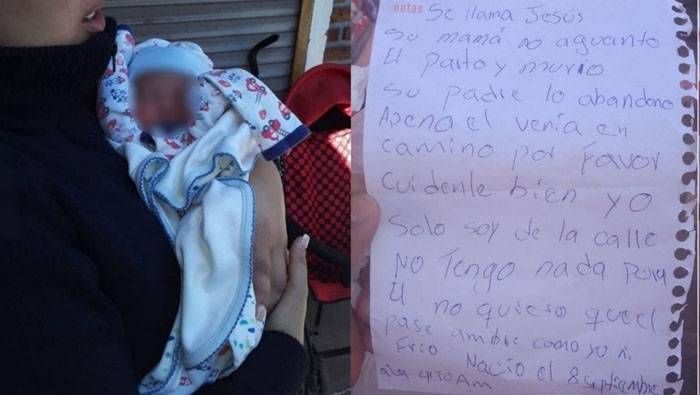 notas
Se llama Jesús
Su mamá no aguanto
El parto y murio
Su padre lo abandono
Apena el venia en
camino por favor
Cuidenle bien yo
Solo soy de la calle
No Tengo nada para
El no quiero que el
pase ambre como yo ni
Frio Nacio el 8 septiembre
a la 4:30 Am